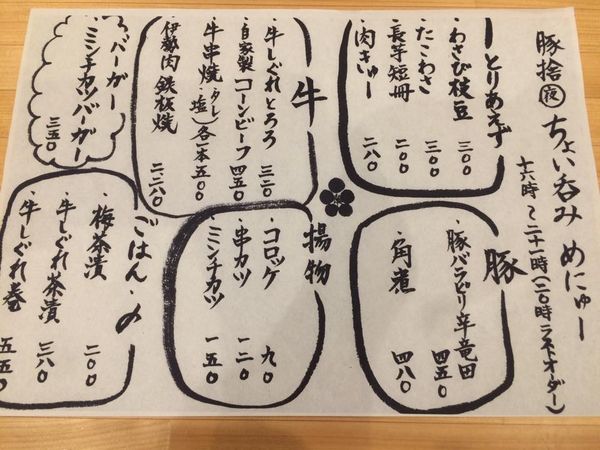 豚捨 夜 ちょい呑み めにゅー
十六時〜二十一時(二〇時ラストオーダー)
とりあえず
・わさび枝豆 三〇〇
・たこわさ 三〇〇
・長芋短冊 二〇〇
・肉きゅー 二八〇
牛
・牛しぐれとろろ 三二〇
・自家製コーンビーフ 四五〇
・牛串焼(タレ・塩)各一本五〇〇
・伊勢肉鉄板焼 二、二八〇
バーガー
・ミンチカツバーガー 三五〇
豚
・豚バラピリ辛竜田 四五〇
・角煮 四八〇
揚物
・コロッケ 九〇
・串カツ 一二〇
・ミンチカツ 一五〇
ごはん・〆
・梅茶漬 二〇〇
・牛しぐれ茶漬 三八〇
・牛しぐれ巻 五五〇